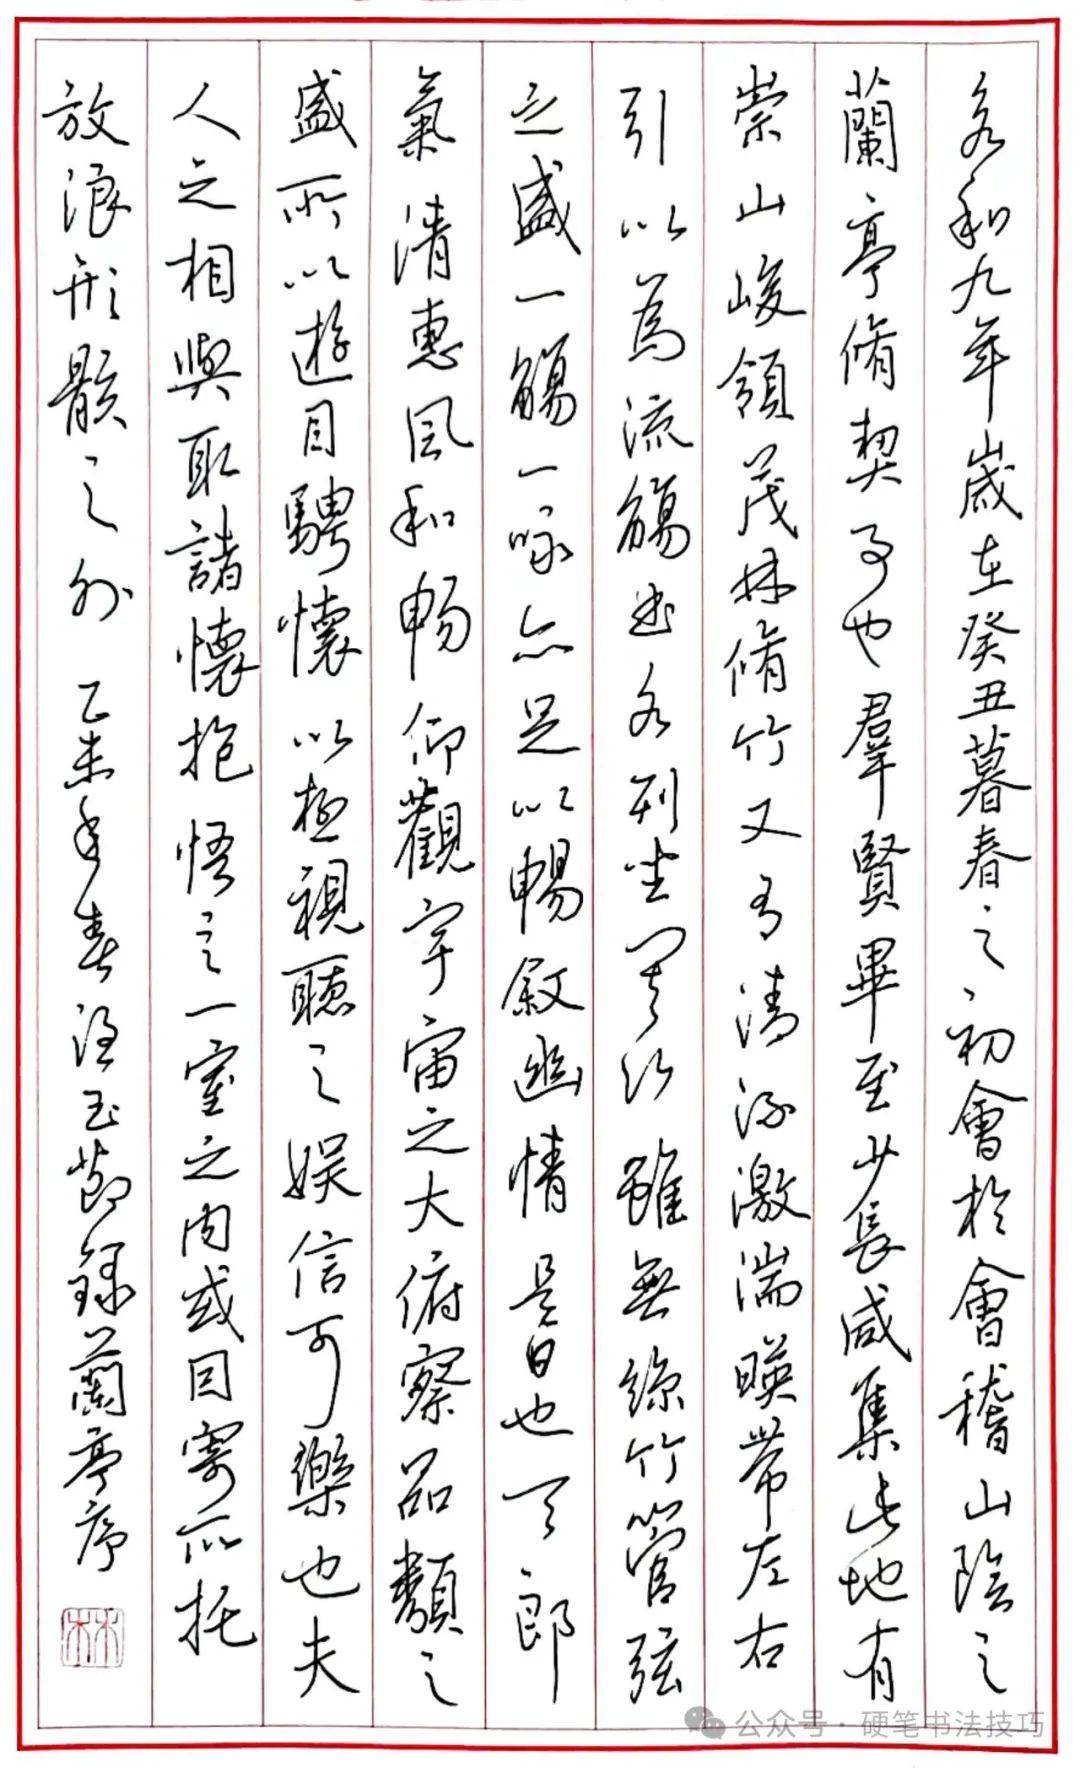 永和九年歲在癸丑暮春之初會於會稽山陰之
蘭亭脩契事也羣賢畢至少長咸集此地有
崇山峻領茂林脩竹又有清流激湍暎帶左右
引以為流觴曲水列坐其次雖無絲竹管弦
之盛一觴一詠亦足以暢敘幽情是日也天朗
氣清惠風和暢仰觀宇宙之大俯察品類之
盛所以遊目騁懷以極視聽之娛信可樂也夫
人之相與取諸懷抱悟言一室之內或因寄所托
放浪形骸之外 乙未年春玉節録蘭亭序
公众号·硬笔书法技巧